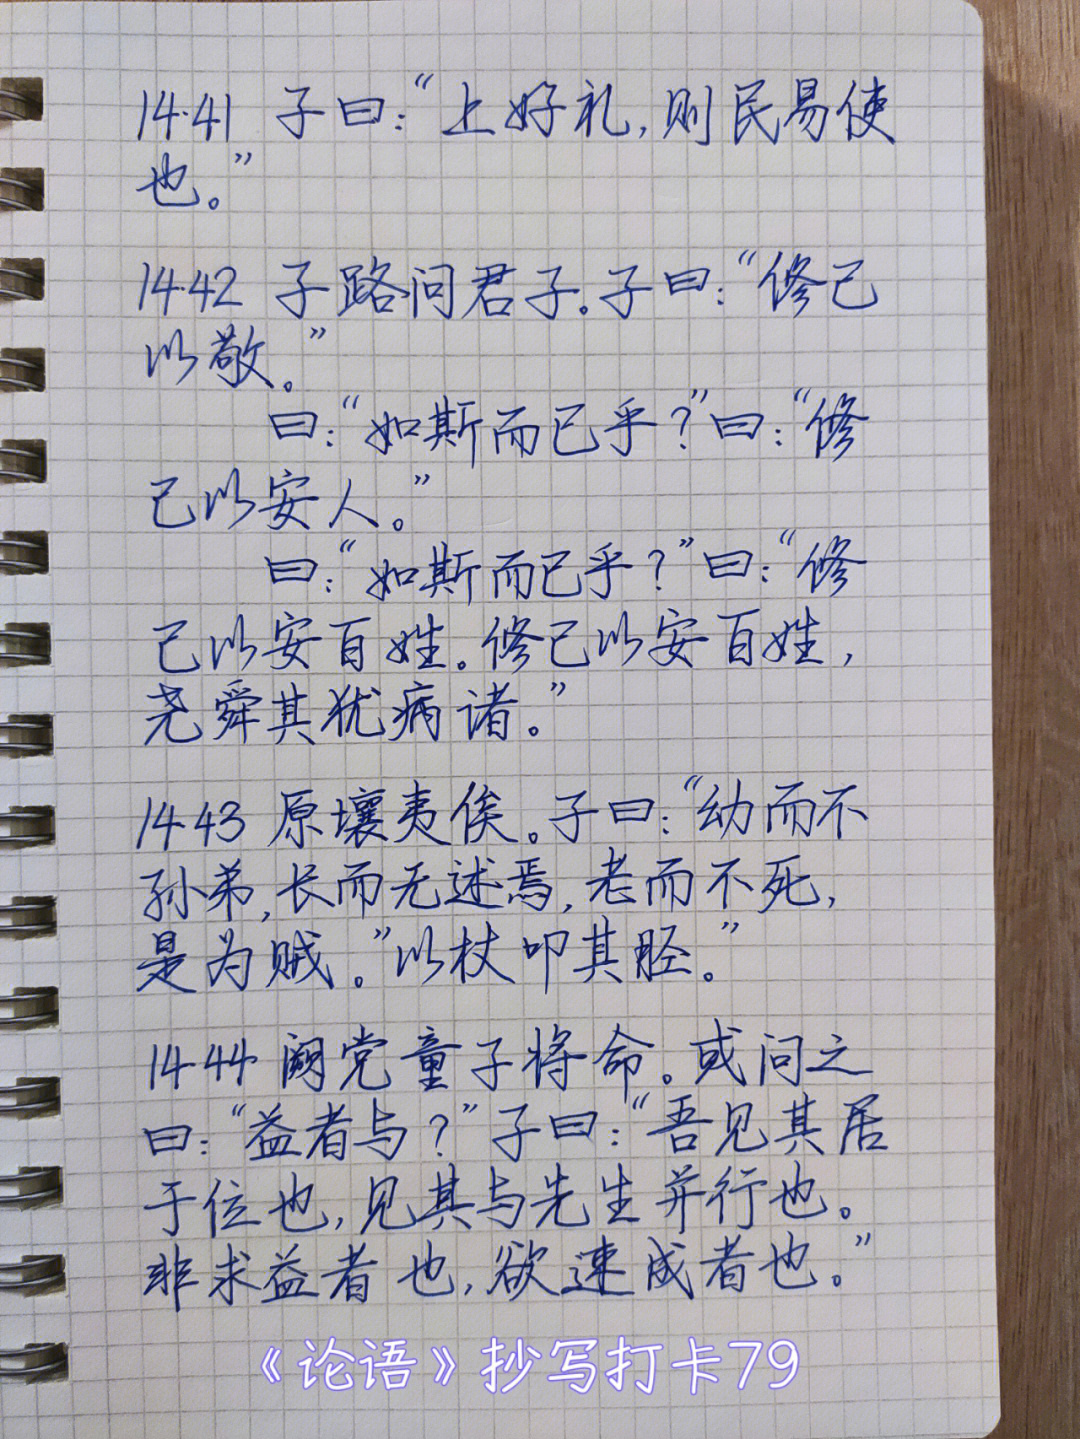 14·41 子曰：“上好礼，则民易使
也。”
14·42 子路问君子。子曰：“修己
以敬。”
曰：“如斯而已乎？”曰：“修
己以安人。”
曰：“如斯而已乎？”曰：“修
己以安百姓。修己以安百姓，
尧舜其犹病诸。”
14·43 原壤夷俟。子曰：“幼而不
孙弟，长而无述焉，老而不死，
是为贼。”以杖叩其胫。”
14·44 阙党童子将命。或问之
曰：“益者与？”子曰：“吾见其居
于位也，见其与先生并行也。
非求益者也，欲速成者也。”
《论语》抄写打卡79